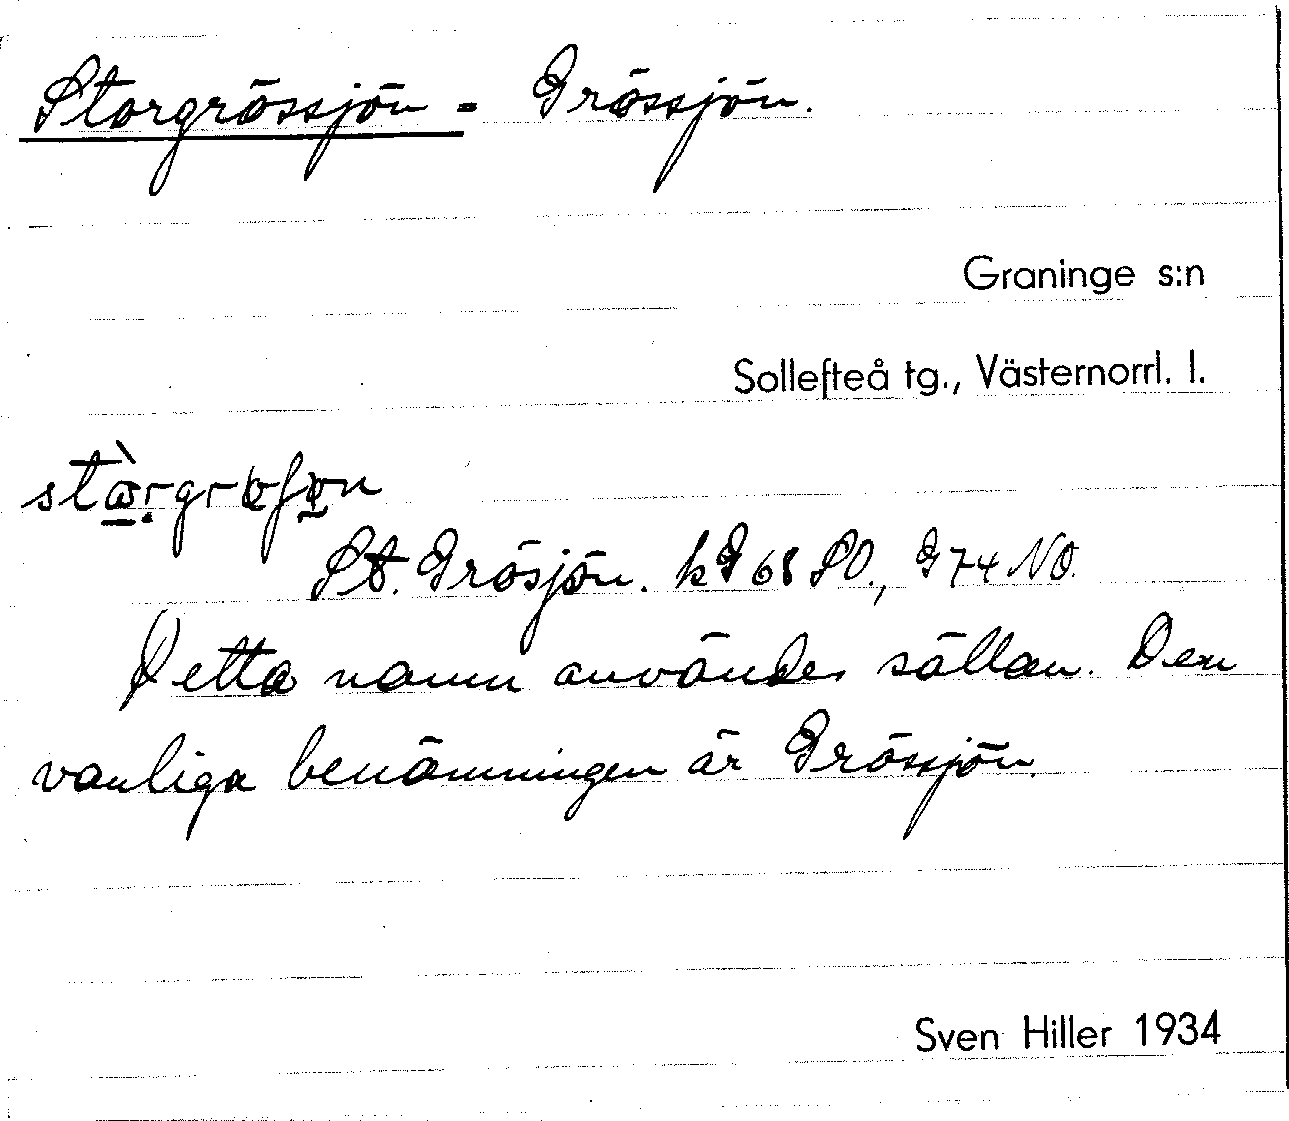 Storgrössjön = Grössjön.
Graninge s:n
Sollefteå tg., Västernorrl. l.
St. Grösjön. kG 68 SO., G 74 NO.
Detta namn användes sällan. Den
vanliga benämningen är Grössjön.
Sven Hiller 1934